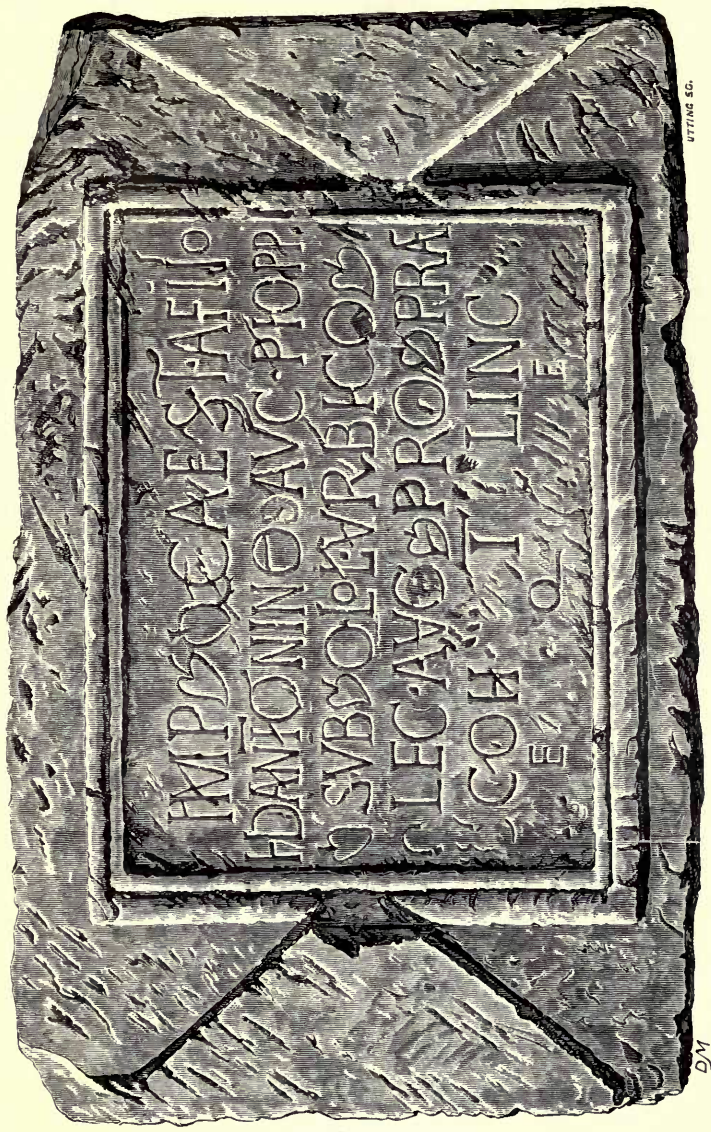 IMP ❧ CAES·T·AELIO
HDANTONINO AVG·PIO PP
❧ SVB ❧ Q LOL VRBICO ❧
LEG·AVG ❧ PRO ❧ PRA
COH I LING
E Q F
UTTING SC.
DM